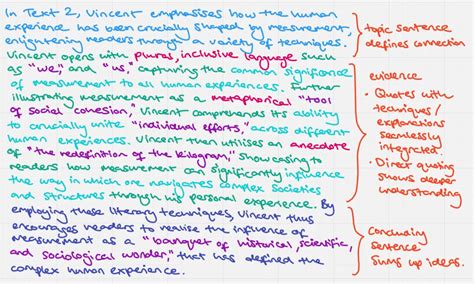 In Text 2, Vincent emphasises how the human
experience has been crucially shaped by measurement,
enlightening readers through a variety of techniques.
Vincent opens with plural, inclusive language such
as "we," and "us," capturing the common significance
of measurement to all human experiences. Further
illustrating measurement as a metaphorical "tool
of social cohesion," Vincent comprehends its ability
to crucially unite "individual efforts," across different
human experiences. Vincent then utilises an anecdote
of "the redefinition of the kilogram," showcasing to
readers how measurement can significantly influence
the way in which one navigates complex societies
and structures through his personal experience. By
employing these literary techniques, Vincent thus
encourages readers to realise the influence of
measurement as a "banquet of historical, scientific,
and sociological wonder," that has defined the
complex human experience.
topic sentence
defines connection
evidence
• Quotes with
techniques/
explanations
seamlessly
integrated.
• Direct quoting
shows deeper
understanding
Concluding
sentence
sums up ideas.